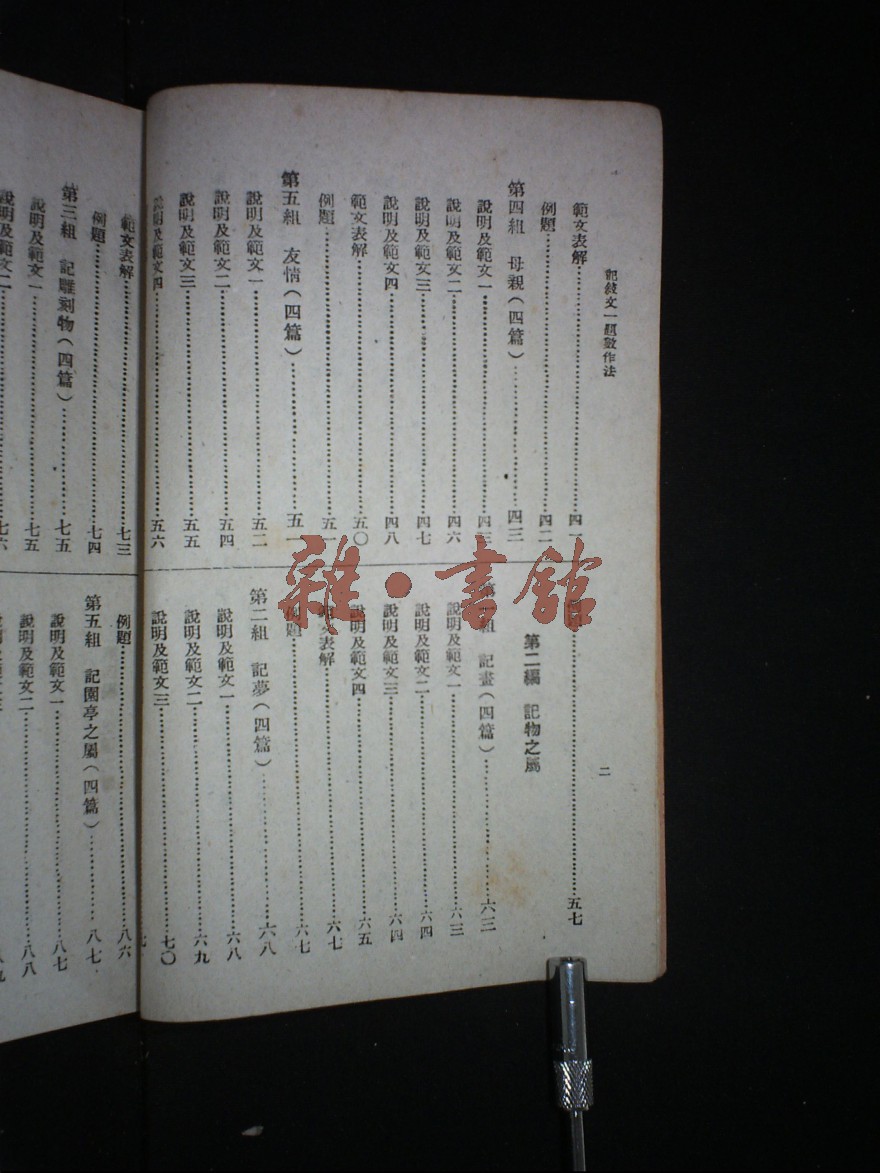 記敍文一題數作法
二
範文表解 四一
例題 四二
第四組 母親(四篇) 四三
說明及範文一 四三
說明及範文二 四六
說明及範文三 四七
說明及範文四 四八
範文表解 五〇
例題 五一
第五組 友情(四篇) 五一
說明及範文一 五二
說明及範文二 五四
說明及範文三 五五
說明及範文四 五六
例題 五七
第二編 記物之屬
第一組 記畫(四篇) 六三
說明及範文一 六三
說明及範文二 六四
說明及範文三 六四
說明及範文四 六五
範文表解 六七
例題 六七
第二組 記夢(四篇) 六八
說明及範文一 六八
說明及範文二 六九
說明及範文三 七〇
範文表解 七三
例題 七四
第三組 記雕刻物(四篇) 七五
說明及範文一 七五
說明及範文二 七六
例題 八六
第五組 記園亭之屬(四篇) 八七
說明及範文一 八七
說明及範文二 八八
雜·書館